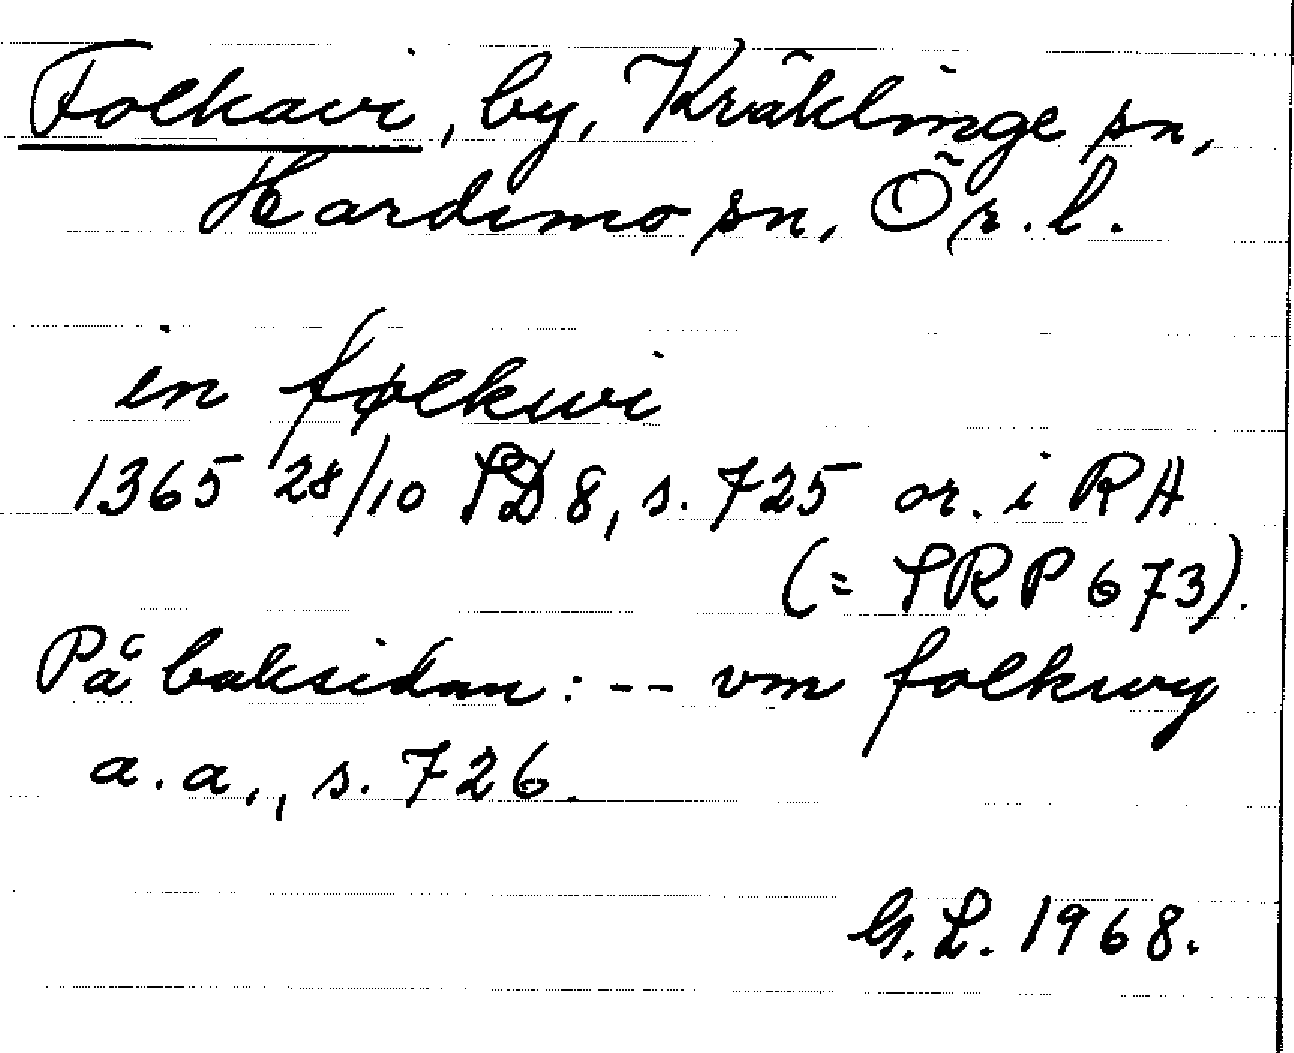 Folkavi, by, Kräklinge sn,
Hardemo sn, Ör. l.
in følkwi
1365 28/10 SD 8, s. 725 or. i RA
(= SRP 673).
På baksidan: -- vm folkwy
a. a., s. 726.
G. L. 1968.